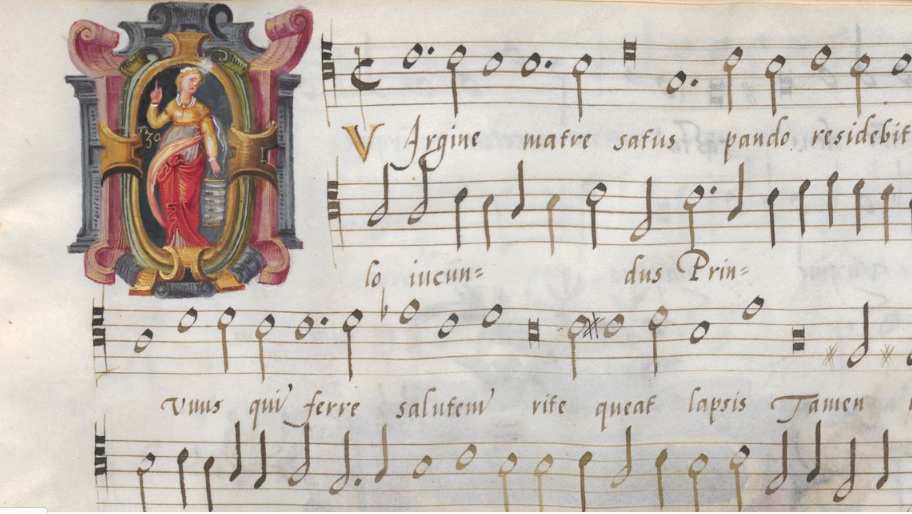 VIrgine matre satus pando residebit
lo iucun= dus Prin=
Vnus qui ferre salutem rite queat lapsis Tamen